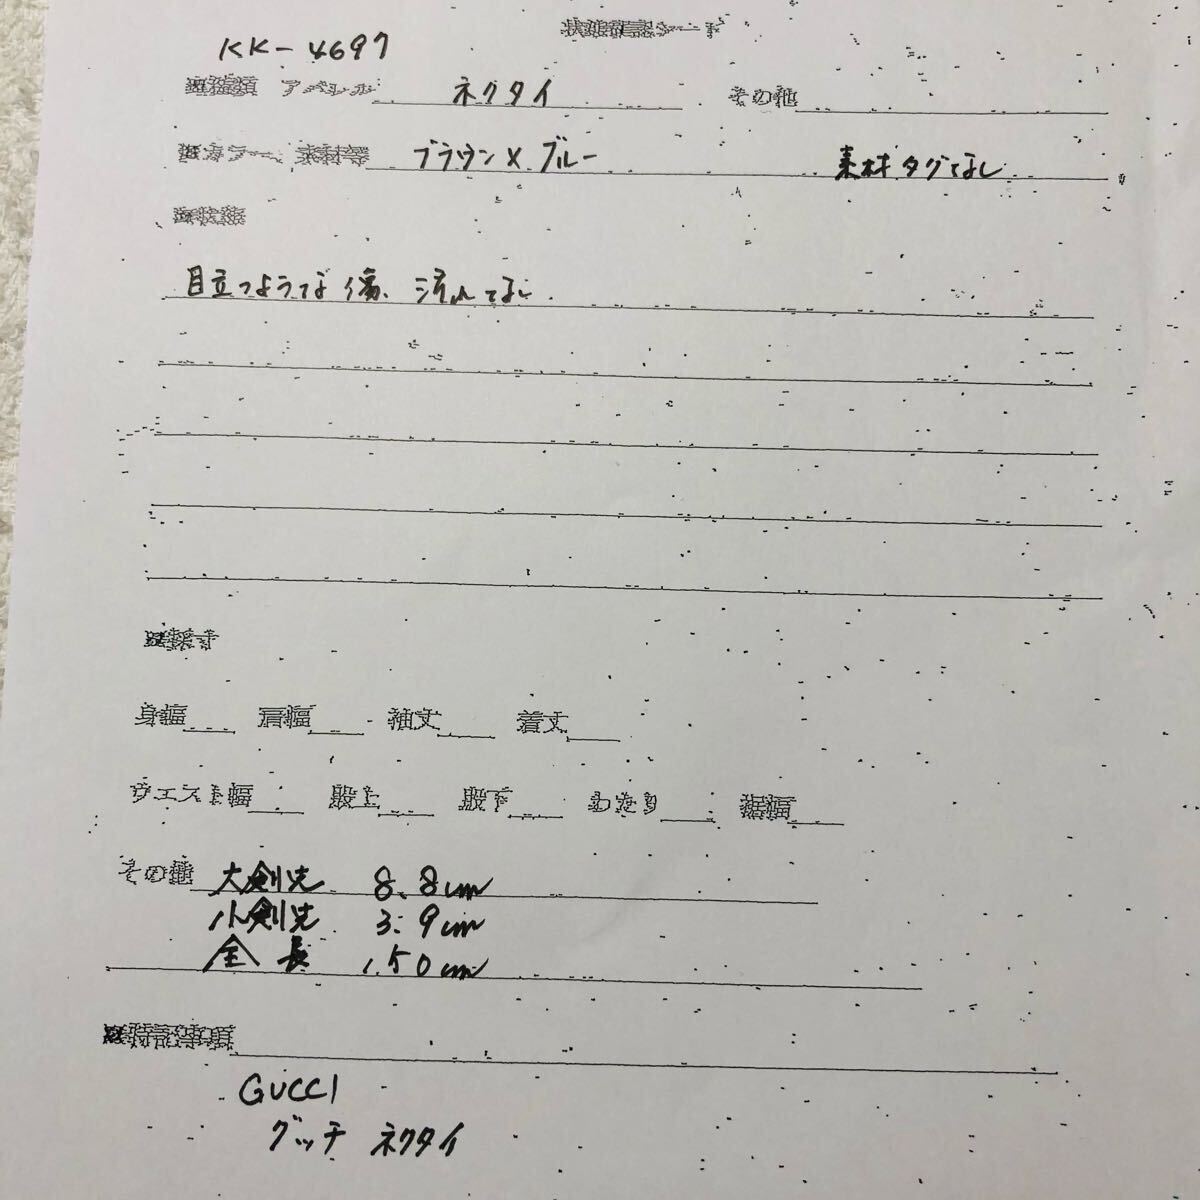 状態確認シート
KK-4697
種類 アパレル ネクタイ その他
カラー、素材等 ブラウン×ブルー 素材タグなし
状態
目立つような傷、汚れなし
採寸
身幅 肩幅 袖丈 着丈
ウエスト幅 股上 股下 わたり 裾幅
その他 大剣先 8.8cm
小剣先 3.9cm
全長 150cm
特記事項
GUCCI
グッチ ネクタイ